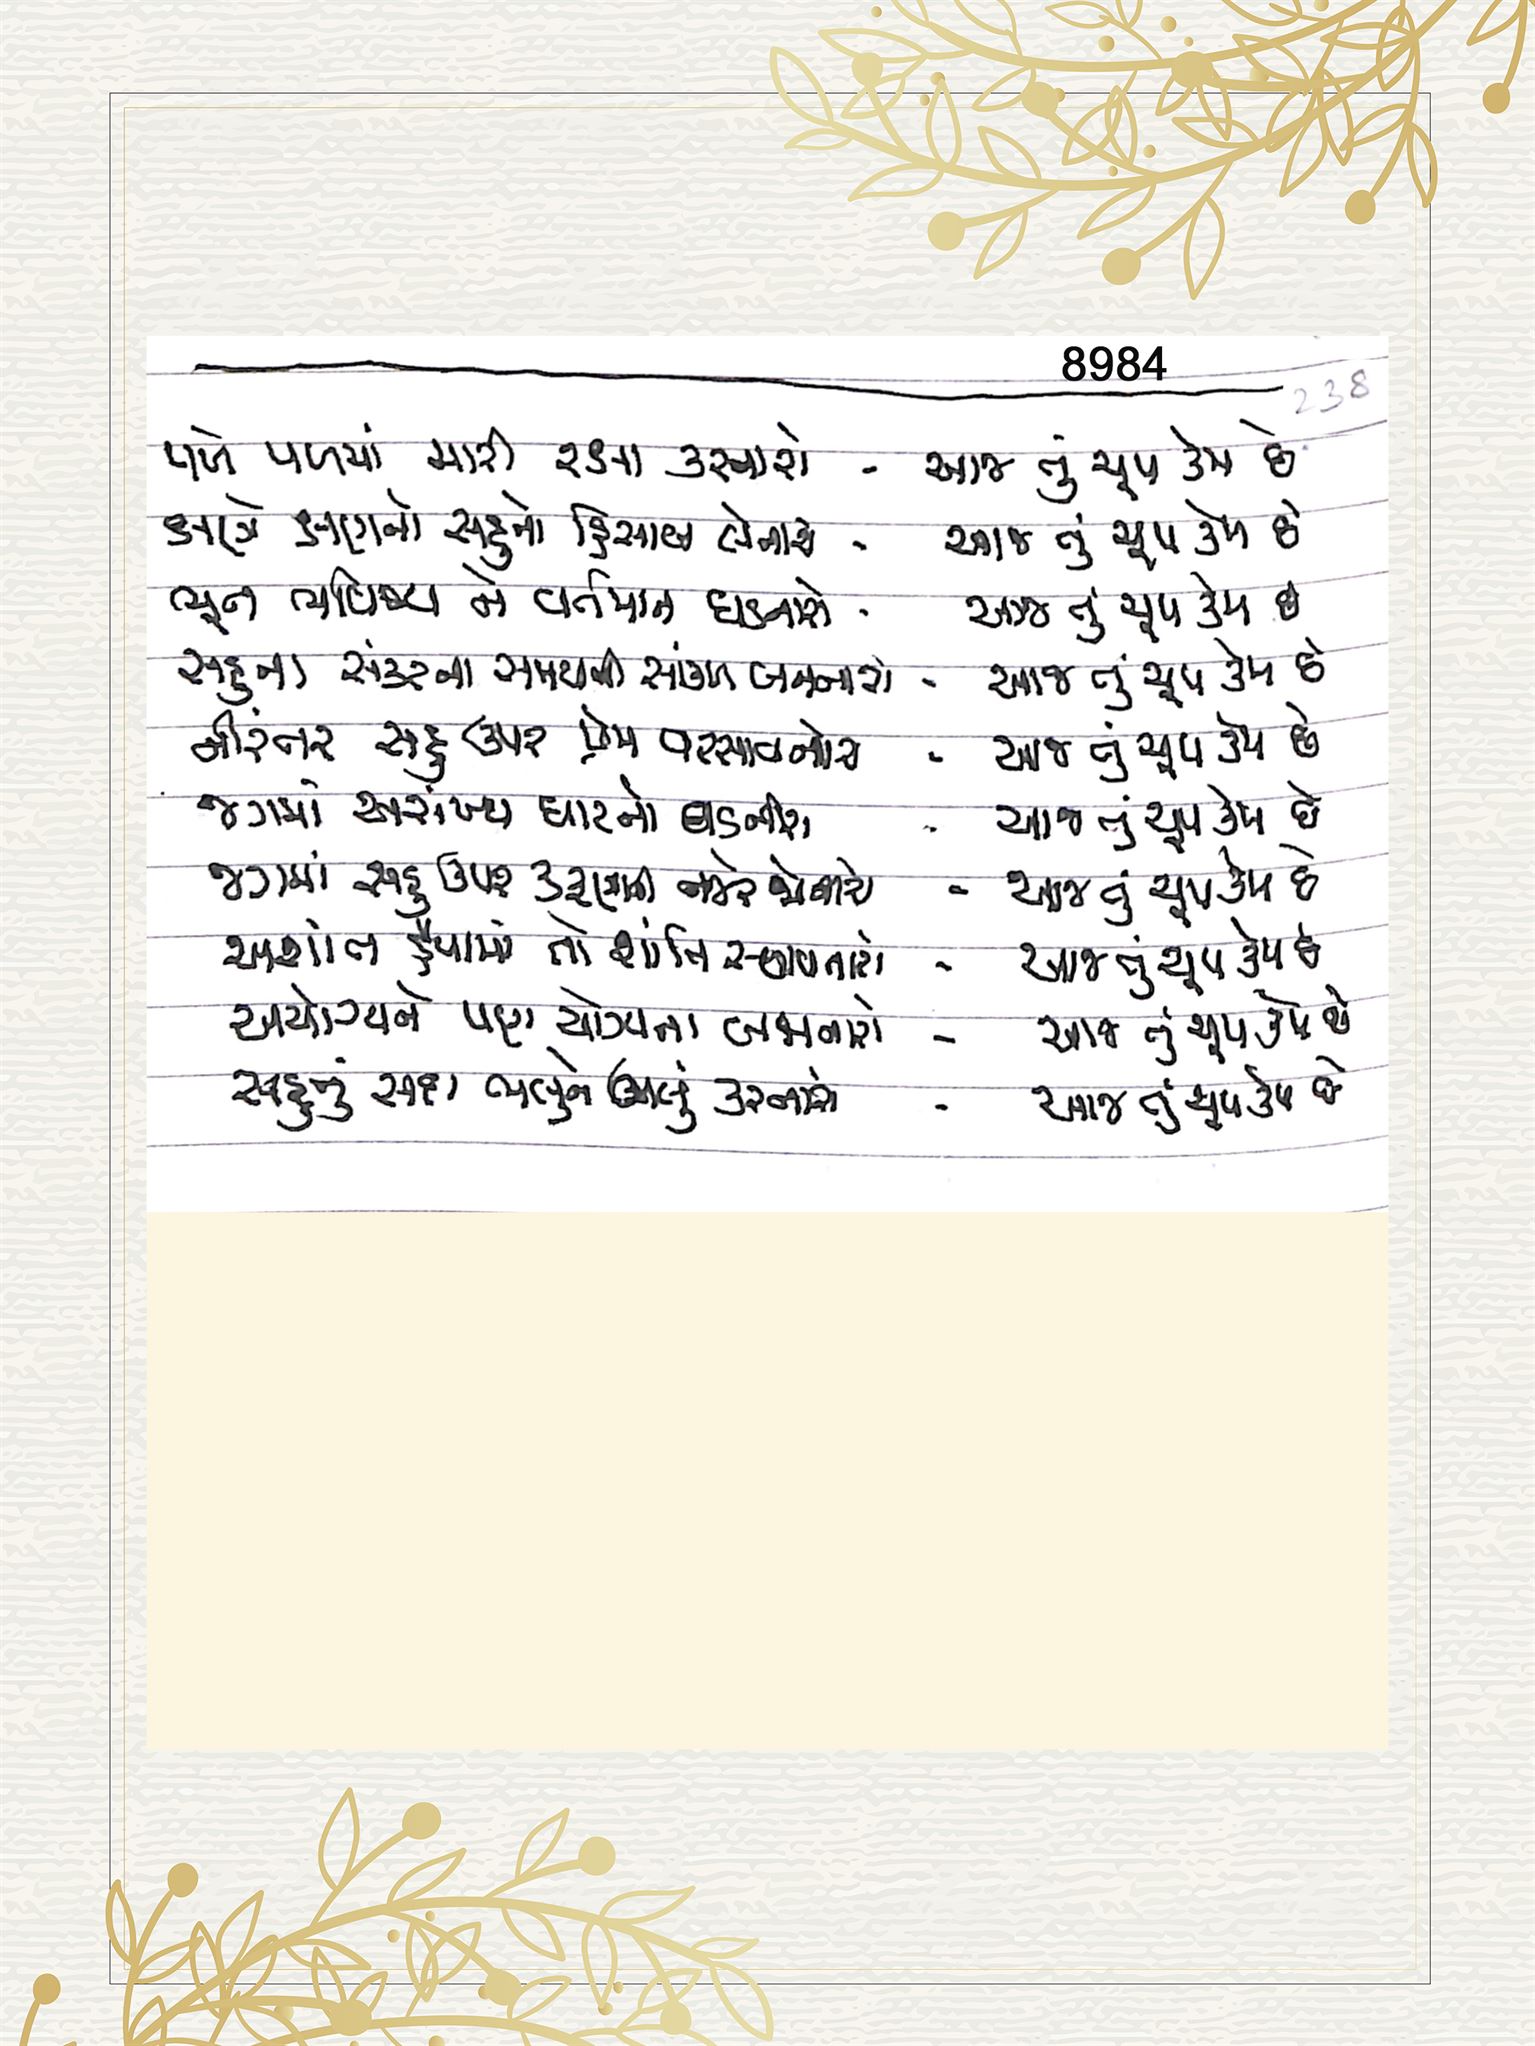 8984
238
પળે પળમાં મારી રક્ષા કરનારો - આજ તું ચૂપ કેમ છે
ક્ષણે ક્ષણનો સહુનો હિસાબ લેનારો - આજ તું ચૂપ કેમ છે
ભૂત ભવિષ્ય ને વર્તમાન ઘડનારો - આજ તું ચૂપ કેમ છે
સહુના સંકટના સમયની સાંકળ બનનારો - આજ તું ચૂપ કેમ છે
નીરંતર સહુ ઉપર પ્રેમ વરસાવનારો - આજ તું ચૂપ કેમ છે
જગમાં અસંખ્ય ઘાટનો ઘડનારો - આજ તું ચૂપ કેમ છે
જગમાં સહુ ઉપર કરુણાની નજરે જોનારો - આજ તું ચૂપ કેમ છે
અશાંત હૈયામાં તો શાંતિ સ્થાપનારો - આજ તું ચૂપ કેમ છે
અયોગ્યને પણ યોગ્યતા બક્ષનારો - આજ તું ચૂપ કેમ છે
સહુનું સદા ભલુંને ભલું કરનારો - આજ તું ચૂપ કેમ છે